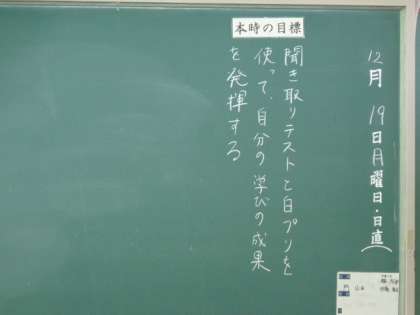 12月19日月曜日・日直(
本時の目標
聞き取りテストと白プリを
使って、自分の学びの成果
を発揮する